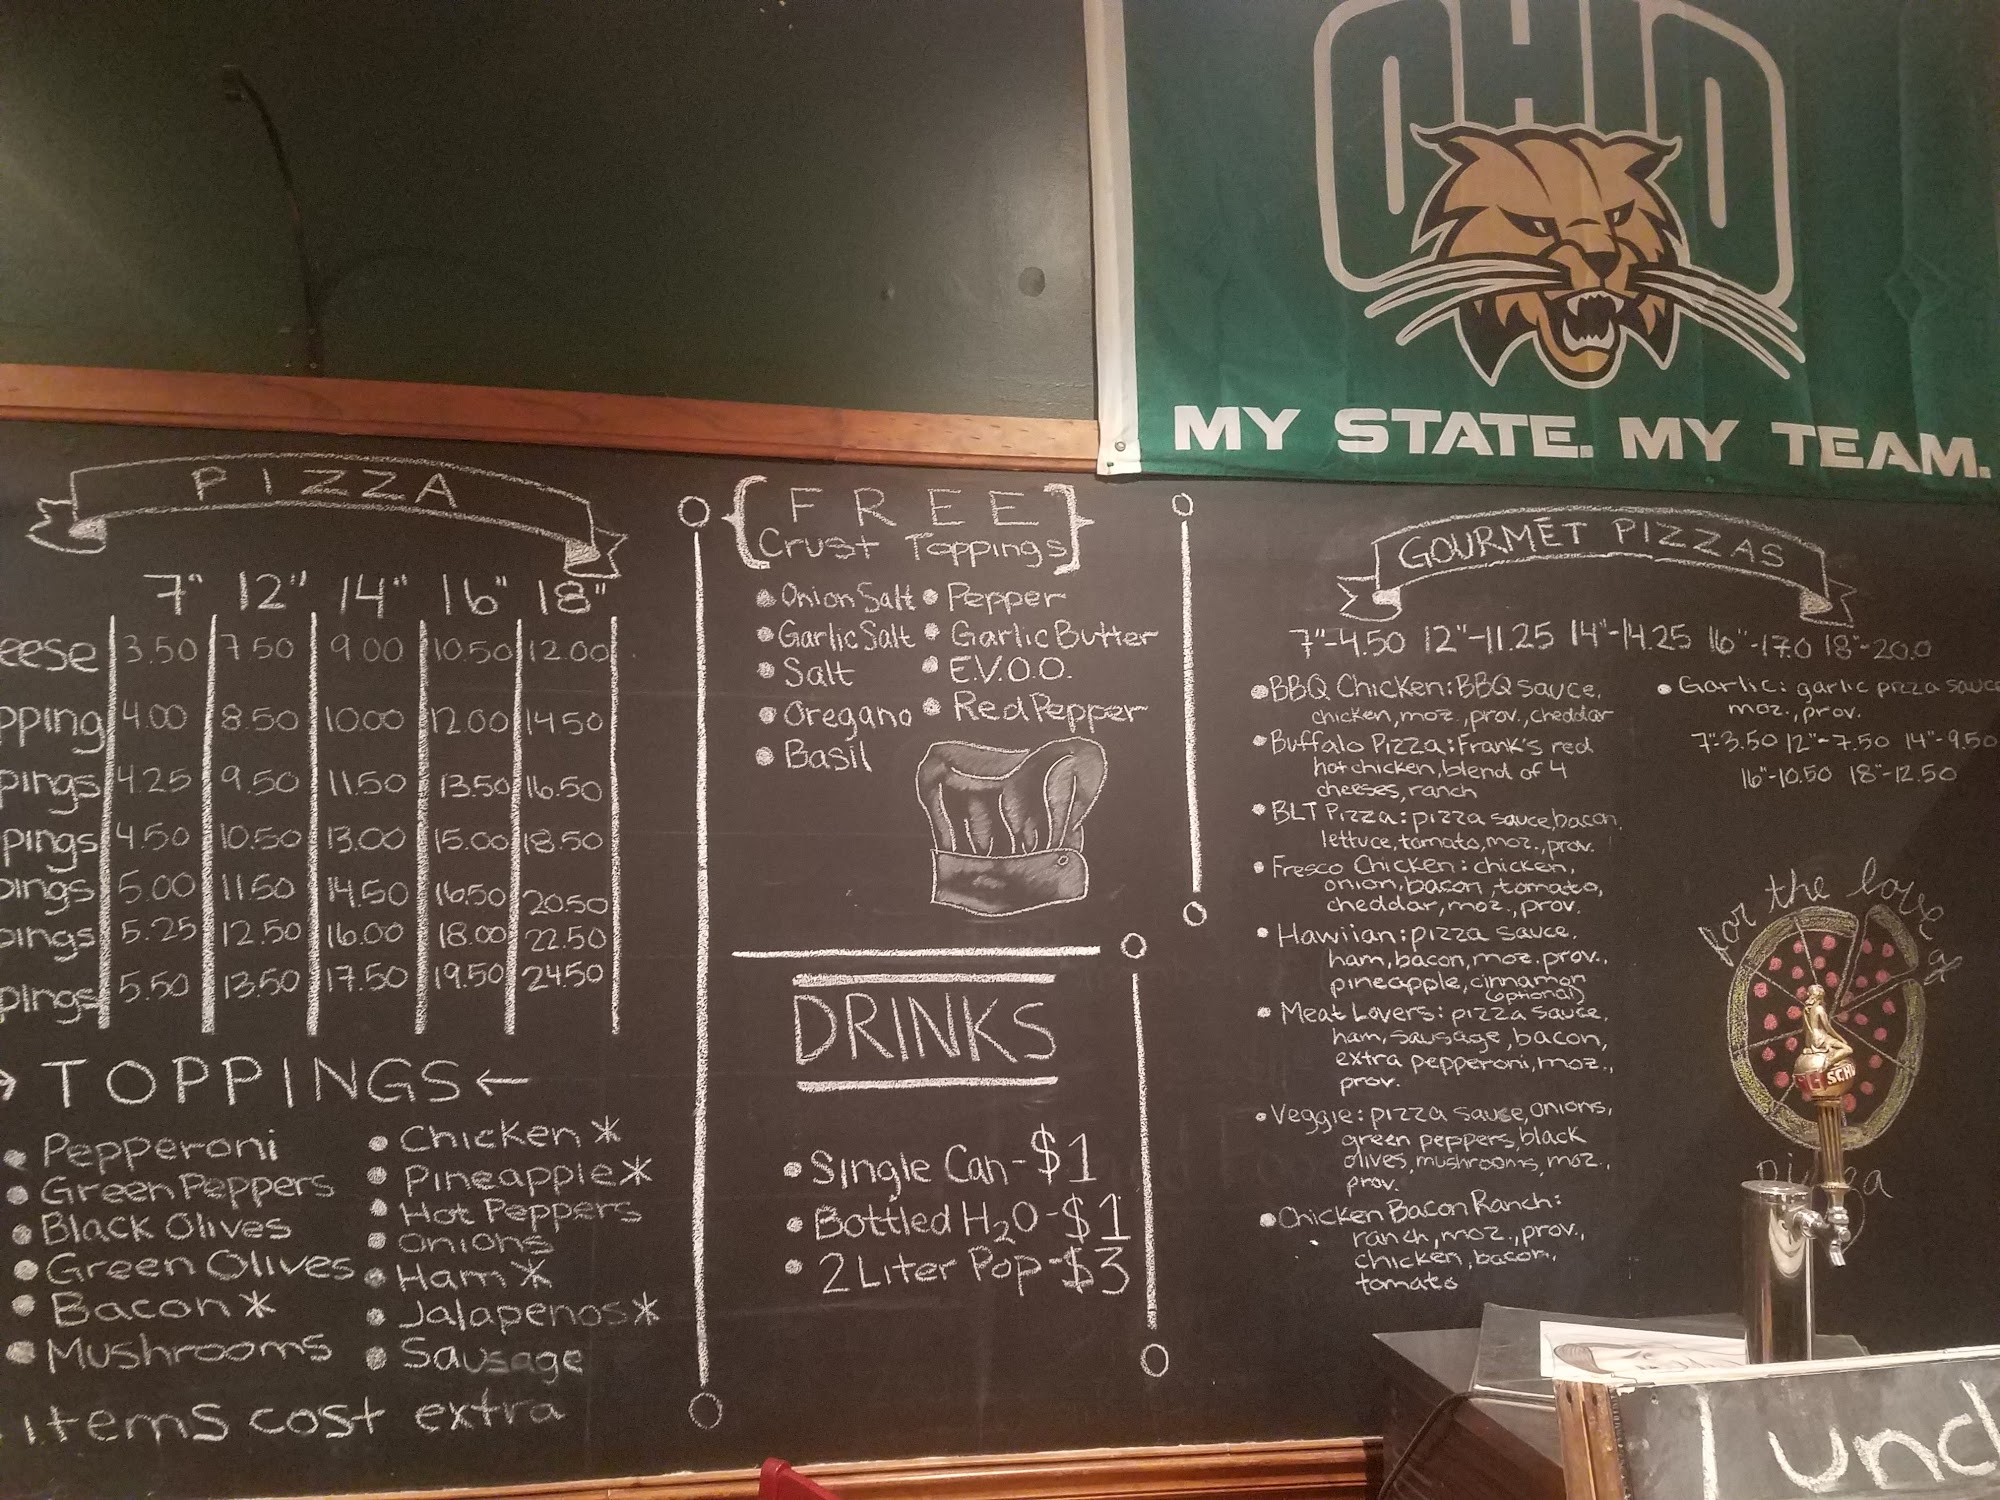 OHIO
MY STATE. MY TEAM.
PIZZA
7" 12" 14" 16" 18"
eese 3.50 7.50 9.00 10.50 12.00
pping 4.00 8.50 10.00 12.00 14.50
pings 4.25 9.50 11.50 13.50 16.50
pings 4.50 10.50 13.00 15.00 18.50
pings 5.00 11.50 14.50 16.50 20.50
pings 5.25 12.50 16.00 18.00 22.50
pings 5.50 13.50 17.50 19.50 24.50
TOPPINGS ←
• Pepperoni
• Green Peppers
• Black Olives
• Green Olives
• Bacon *
• Mushrooms
• Chicken *
• Pineapple *
• Hot Peppers
• Onions
• Ham *
• Jalapenos *
• Sausage
items cost extra
{FREE
Crust Toppings}
• Onion Salt
• Garlic Salt
• Salt
• Oregano
• Basil
• Pepper
• Garlic Butter
• E.V.O.O.
• Red Pepper
DRINKS
• Single Can - $1
• Bottled H₂O - $1
• 2 Liter Pop - $3
GOURMET PIZZAS
7"-4.50 12"-11.25 14"-14.25 16"-17.0 18"-20.0
• BBQ Chicken: BBQ sauce,
chicken, moz., prov., cheddar
• Buffalo Pizza: Frank's red
hot chicken, blend of 4
cheeses, ranch
• BLT Pizza: pizza sauce, bacon,
lettuce, tomato, moz., prov.
• Fresco Chicken: chicken,
onion, bacon, tomato,
cheddar, moz., prov.
• Hawiian: pizza sauce,
ham, bacon, moz. prov.,
pineapple, cinnamon
(optional)
• Meat Lovers: pizza sauce,
ham, sausage, bacon,
extra pepperoni, moz.,
prov.
• Veggie: pizza sauce, onions,
green peppers, black
olives, mushrooms, moz.,
prov.
• Chicken Bacon Ranch:
ranch, moz., prov.,
chicken, bacon,
tomato
• Garlic: garlic pizza sauce
moz., prov.
7"-3.50 12"-7.50 14"-9.50
16"-10.50 18"-12.50
for the love of